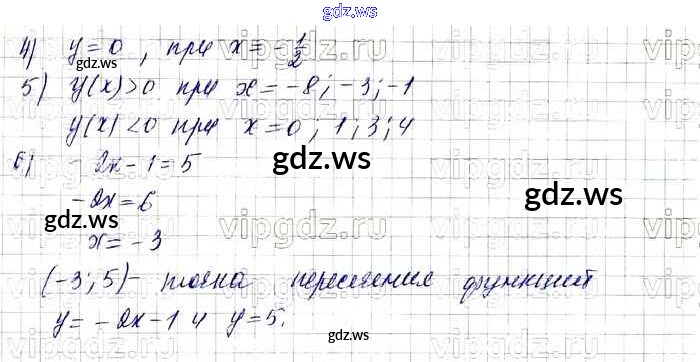 gdz.ws
4) y = 0, при x = -1/2
gdz.ws
5) y(x) > 0 при x = -8; -3; -1
y(x) < 0 при x = 0; 1; 3; 4
6) -2x - 1 = 5
gdz.ws
-2x = 6
gdz.ws
gdz.ws
x = -3
(-3; 5) - точка пересечения функций
y = -2x - 1 и y = 5.
gdz.ws
vipgdz.ru